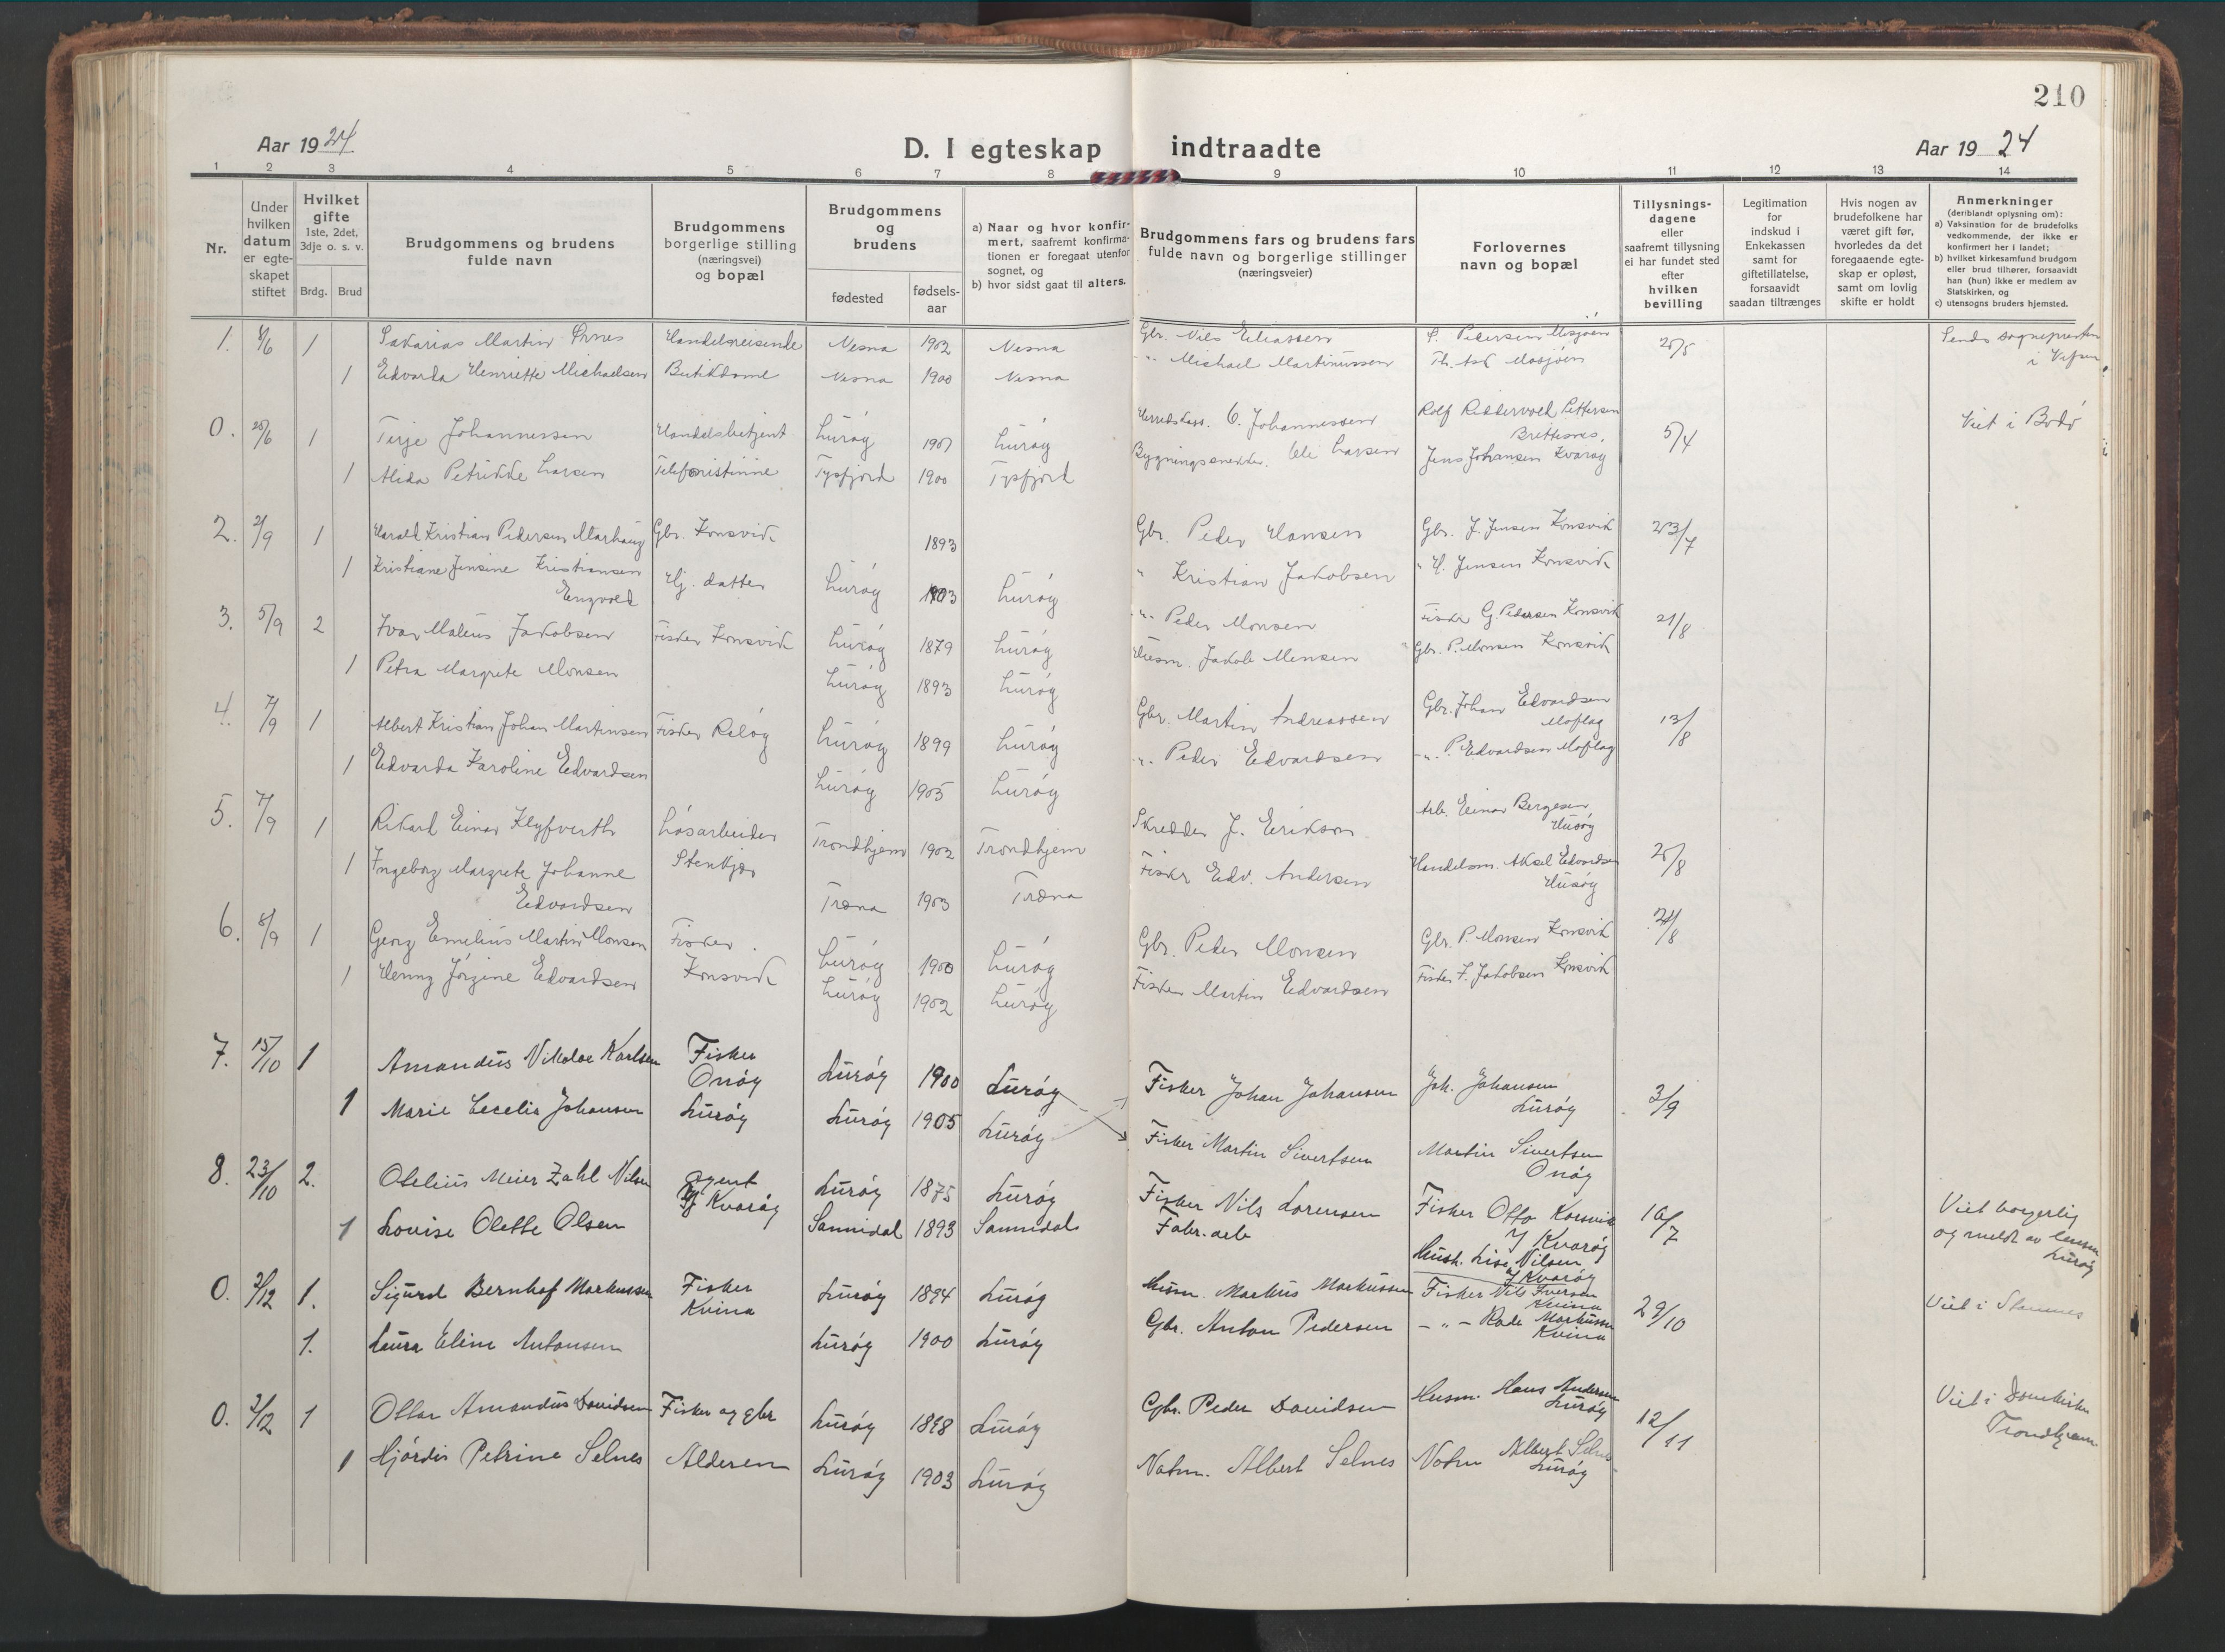 210
Aar 1924
D. I egteskap indtraadte
Aar 1924
1 2 3 4 5 6 7 8 9 10 11 12 13 14
Nr.
Under hvilken datum er egteskapet stiftet
Hvilket gifte 1ste, 2det, 3dje o. s. v.
Brdg. Brud
Brudgommens og brudens fulde navn
Brudgommens borgerlige stilling (næringsvei) og bopæl
Brudgommens og brudens
fødested
fødselsaar
a) Naar og hvor konfirmert, saafremt konfirmationen er foregaat utenfor sognet, og
b) hvor sidst gaat til alters.
Brudgommens fars og brudens fars fulde navn og borgerlige stillinger (næringsveier)
Forlovernes navn og bopæl
Tillysningsdagene eller saafremt tillysning ei har fundet sted efter hvilken bevilling
Legitimation for indskud i Enkekassen samt for giftetillatelse, forsaavidt saadan tiltrænges
Hvis nogen av brudefolkene har været gift før, hvorledes da det foregaaende egteskap er opløst, samt om lovlig skifte er holdt
Anmerkninger
(deriblandt oplysning om):
a) Vaksination for de brudefolks vedkommende, der ikke er konfirmert her i landet;
b) hvilket kirkesamfund brudgom eller brud tilhører, forsaavidt han (hun) ikke er medlem av Statskirken, og
c) utensogns bruders hjemsted.
1. 1 Sakarias Martin Handelsreisende Nesna 1902 Nesna Gbr. Nils Eliassen P. Pedersen Mosjøen 25/5 Sends sognepresten
i Vefsn
1 Edvarda Henriette Michaelsen Butikdame Nesna 1900 Nesna -"- Michael Martinussen Mosjøen
0. 1 Terje Johannessen Handelsbetjent Lurøy 1901 Lurøy Herredskass. Johannessen Rolf Riddervold Pettersen
Brettesnes. 5/4 Viet i Bodø
1 Alida Petrikke Larsen Telefonistinne Tysfjord 1900 Tysfjord Bygningssnedker. Larsen Jens Johansen Kvarøy
2. 2/9 1 Harald Kristian Pedersen Marhaug Gbr. Konsvik 1893 Gbr. Peder Hansen Gbr. J. Jensen Konsvik 23/7
1 Kristiane Jensine Kristiansen
Engvold Hj. datter Lurøy 1903 Lurøy " Kristian Jakobsen " H. Jensen Konsvik
3. 5/9 2 Ivar Maleus Jakobsen Fisker Konsvik Lurøy 1879 Lurøy -"- Peder Monsen Fisker G. Pedersen Konsvik 21/8
1 Petra Margrete Monsen Lurøy 1893 Lurøy Husm. Jakob Monsen Gbr. P. Monsen Konsvik
4. 7/9 1 Albert Kristian Johan Martinsen Fisker Reløy Lurøy 1899 Lurøy Gbr. Martin Andreassen Gbr. Johan Edvardsen
Moflag 13/8
1 Edvarda Karoline Edvardsen Lurøy 1905 Lurøy -"- Peder Edvardsen -"- P. Edvardsen Moflag
5. 7/9 1 Rikard Einar Klyfverth Løsarbeider Trondhjem 1902 Trondhjem Skredder J. Erikson Arb. Einar Bergesen,
Husøy
1 Ingeborg Margrete Johanne
Edvardsen Stenkjær Træna 1903 Træna Fisker Edv. Andersen Handelsm. Aksel Edvardsen
Husøy 25/8
6. 8/9 1 Georg Emelius Martin Monsen Fisker Lurøy 1900 Lurøy Gbr. Peder Monsen Gbr. P. Monsen Konsvik
1 Henny Jørgine Edvardsen Konsvik Lurøy 1902 Lurøy Fisker Martin Edvardsen Fisker Jakobsen Konsvik
7. 15/10 1 Amandus Nikolai Karlsen Fisker
Onøy Lurøy 1900 Lurøy Fisker Johan Johansen Joh. Johansen
Lurøy 3/9
1 Marie Cecelie Johansen Lurøy Lurøy 1905 Lurøy Fisker Martin Sivertsen Martin Sivertsen
Onøy
8. 23/10 2. Otelius Meier Zahl Nilsen agent
Kvarøy Lurøy 1875 Lurøy Fisker Nils Lorensen Fisker Otto Korsvik
Y Kvarøy 16/7 Viet borgerlig
og meldt av
Lurøy
1 Lovise Olette Olsen Sannidal 1893 Sannidal Fabr. arb Hush. Lise Nilsen
Y Kvarøy
0. 2/12 1. Sigurd Bernhof Markussen Fisker
Kvina Lurøy 1894 Lurøy Husm. Markus Markussen Fisker Nils Iversen
Kvina 29/10 Viet i Stamnes
1. Laura Eline Antonsen Lurøy 1900 Lurøy Gbr. Anton Pedersen -"- Markussen
Kvina
0. 1 Ottar Amandus Davidsen Fisker og gbr Lurøy 1898 Lurøy Gbr. Peder Davidsen Husm. Hans Andersen
Lurøy 12/11 Viet i Domkirken
Trondhjem
1 Hjørdis Petrine Selnes Alderen Lurøy 1903 Lurøy Notm. Albert Selnes Notm Albert Selnes
Lurøy